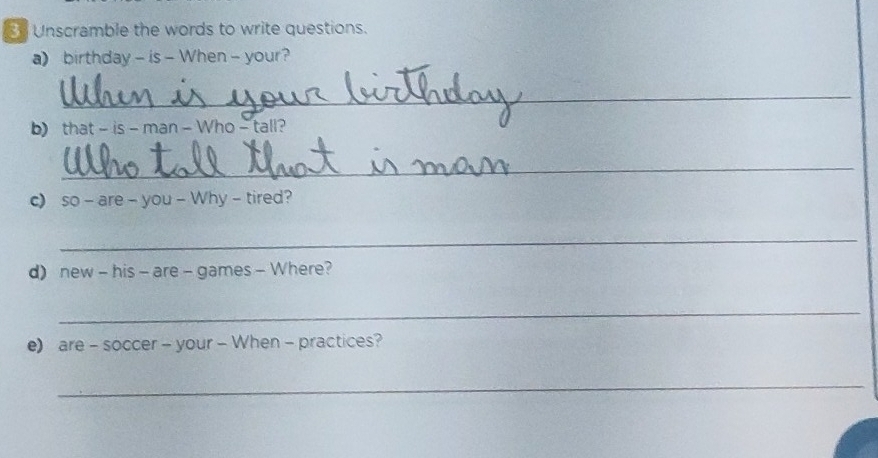 3 Unscramble the words to write questions.
a) birthday – is – When – your?
When is your birthday
b) that – is – man – Who – tall?
Who tall that is man
c) so – are – you – Why – tired?
d) new – his – are – games – Where?
e) are – soccer – your – When – practices?